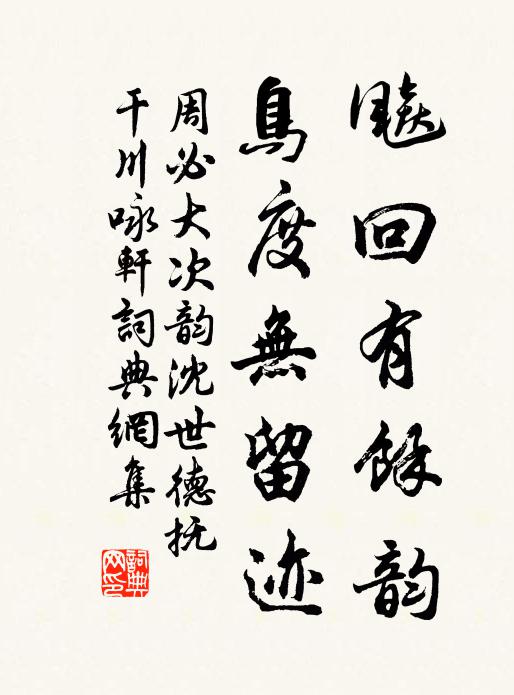 飈回有餘韵
鳥度無留迹
周必大次韵沈世德抚
干川咏軒詞典網集
詞典网印